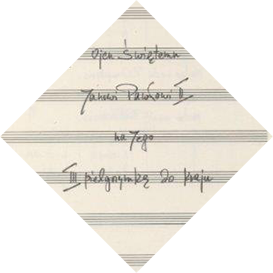 Ojcu Świętemu
Janowi Pawłowi II
na Jego
III pielgrzymkę do kraju